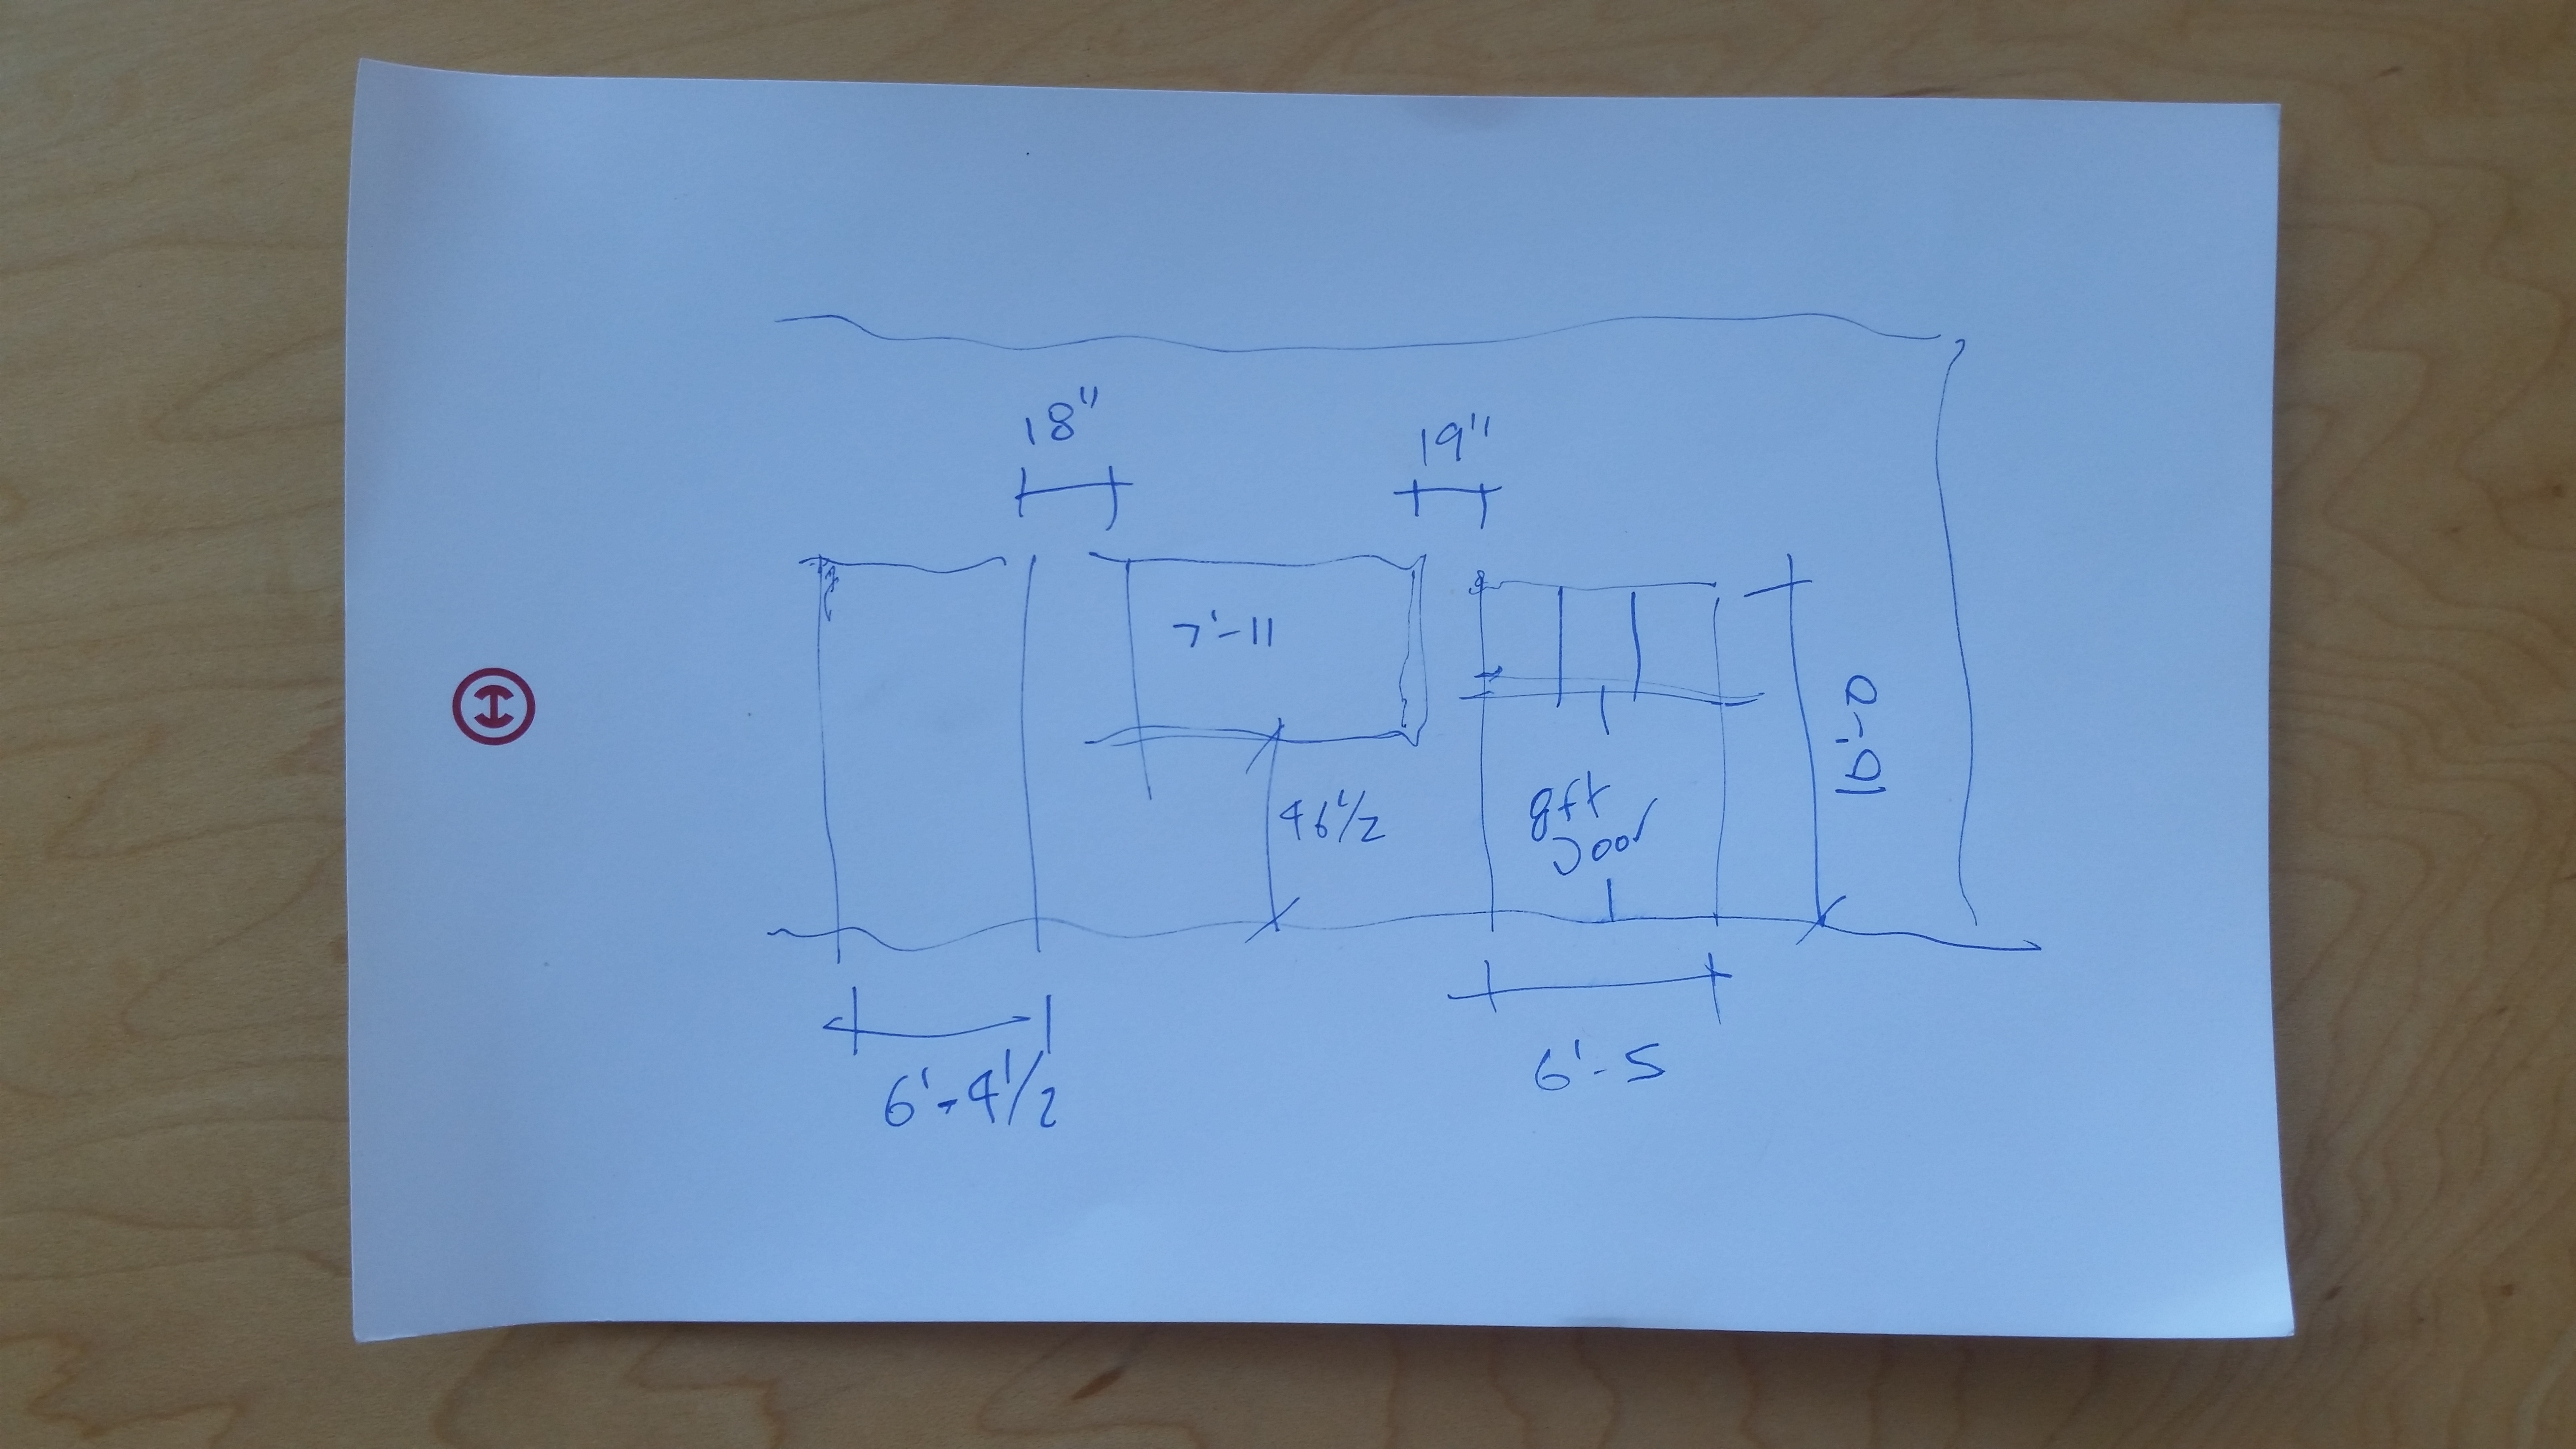 18"
19"
7'-11
46 1/2
8ft
Door
6'-4 1/2
6'-5